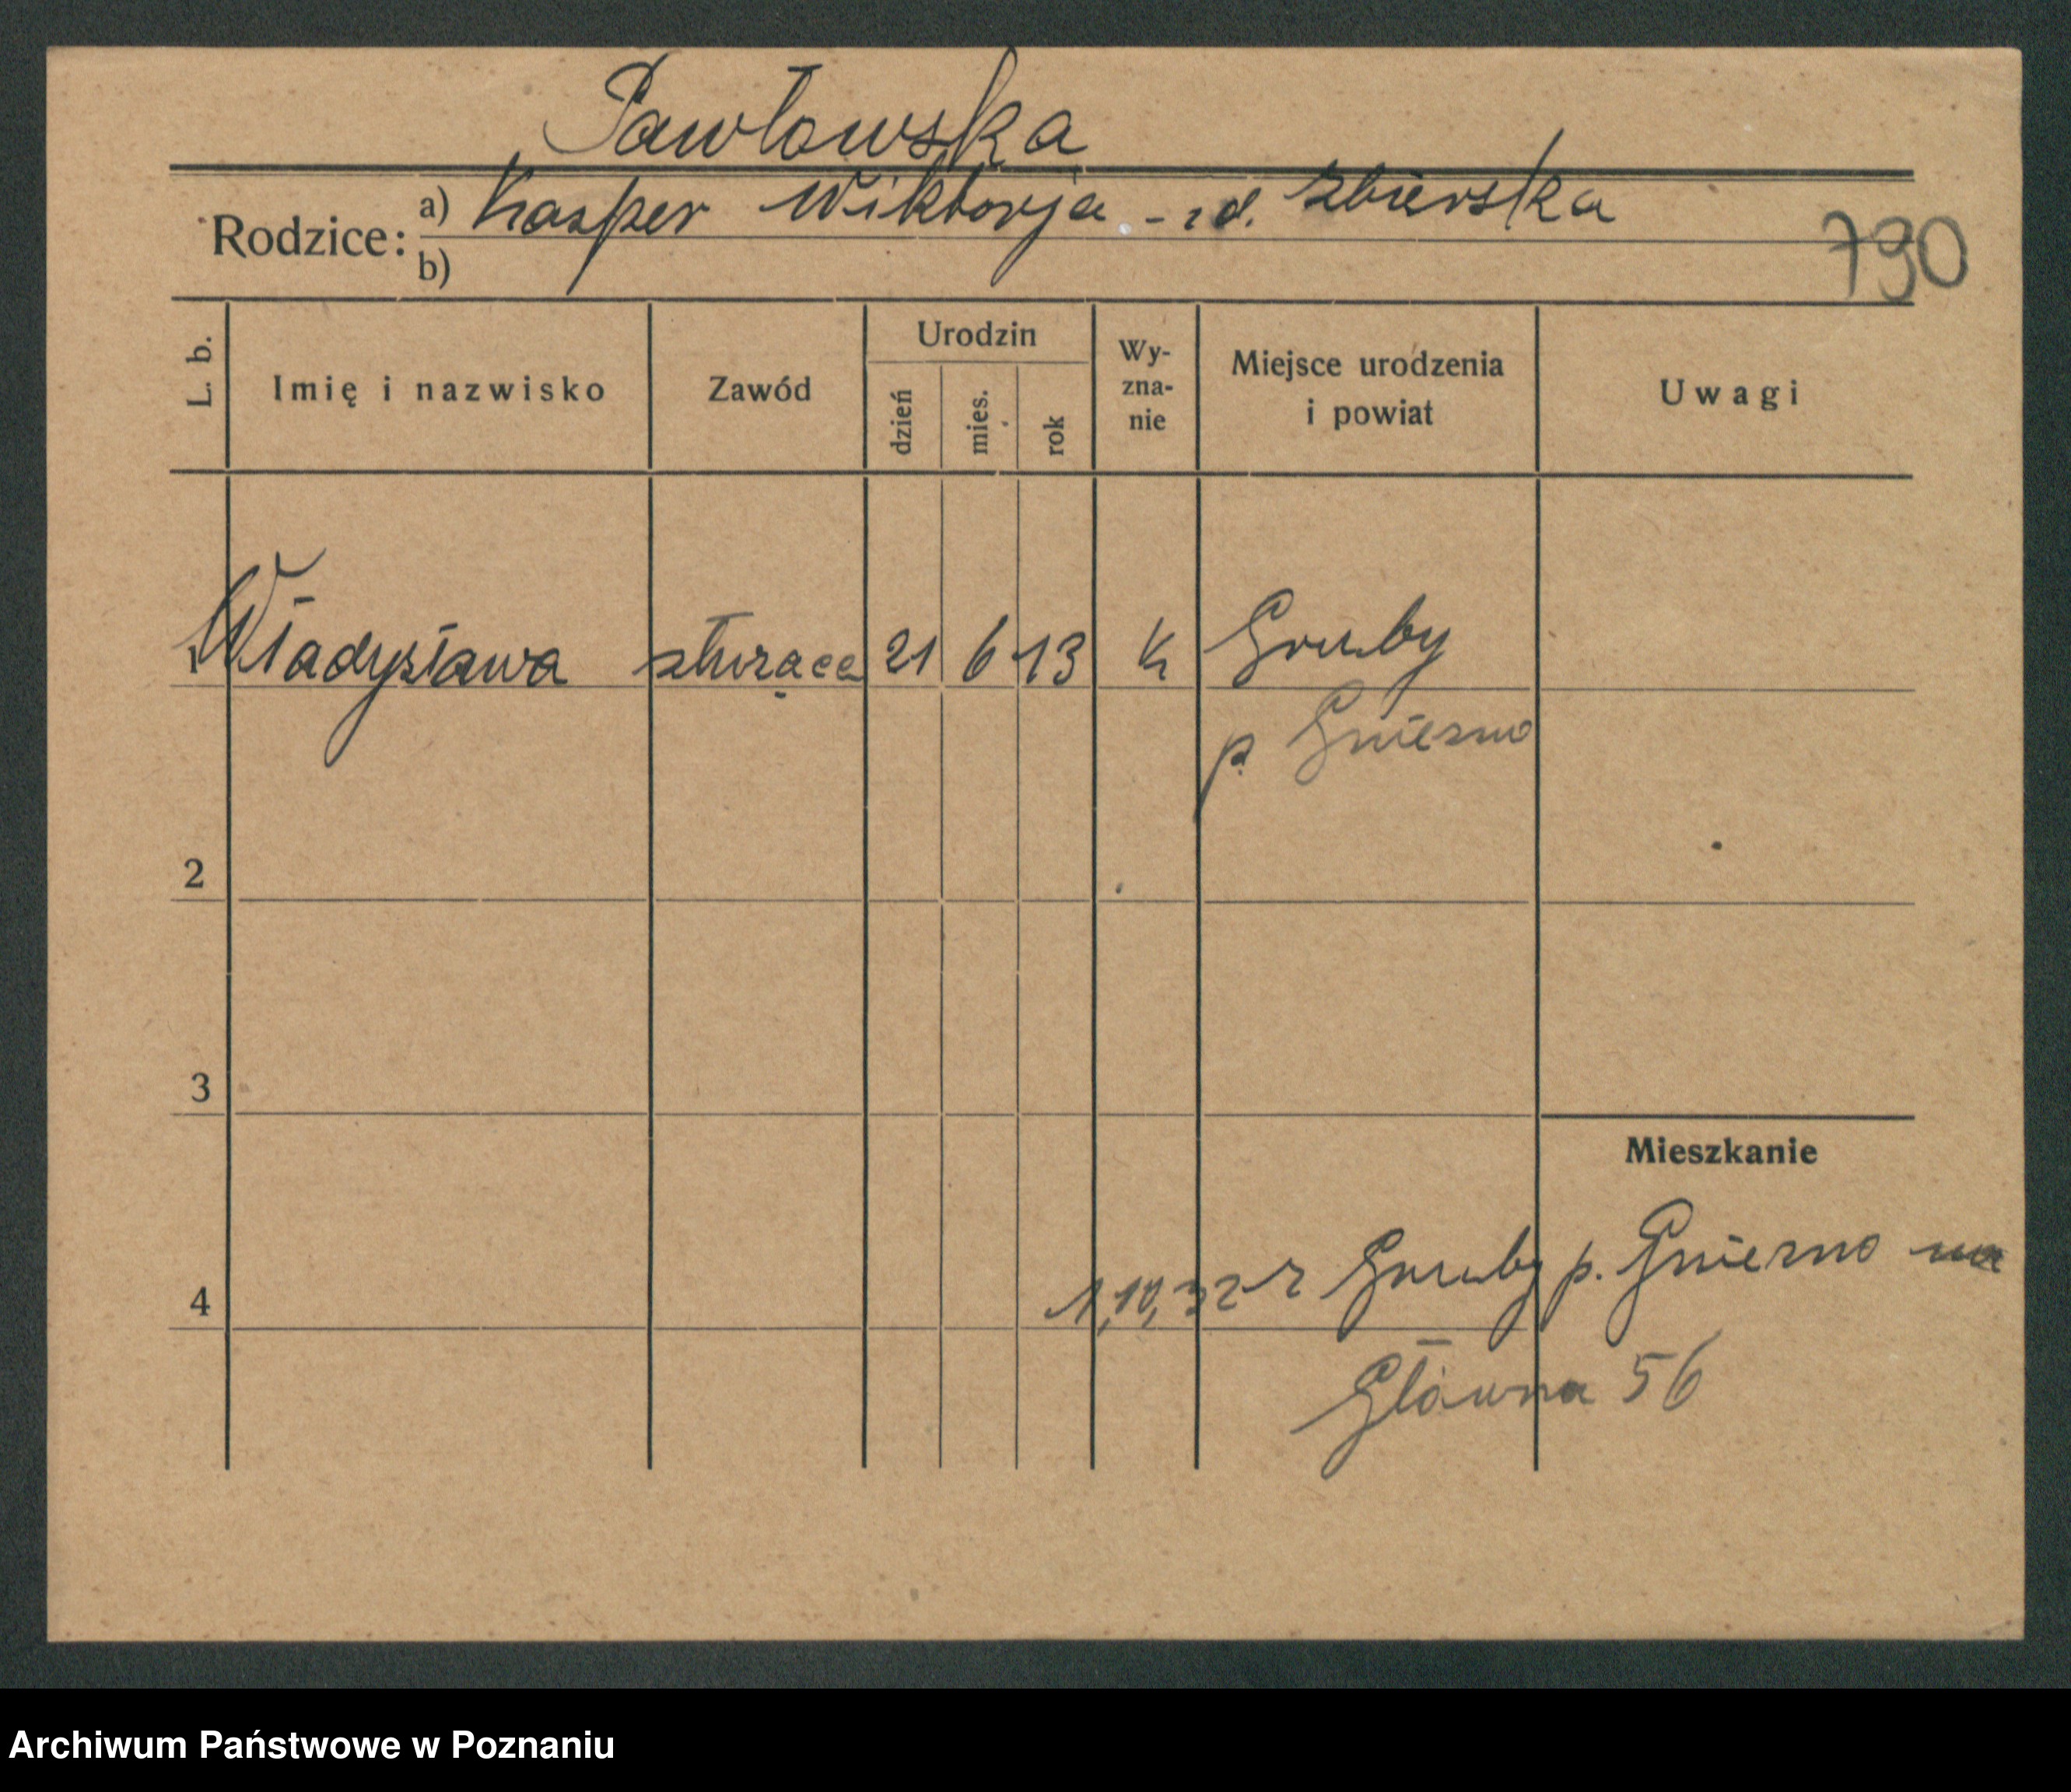 Pawłowska
Rodzice: a) Kasper Wiktorja - zd. Zbierska
b)
790
L. b. Imię i nazwisko Zawód Urodzin dzień mies. rok Wy-zna-nie Miejsce urodzenia i powiat Uwagi
1 Władysława służąca 21 6 13 k Gruby
p. Gniezno
2
3
Mieszkanie
4 1,10,32 z Gruby p. Gniezno na
Główna 56
Archiwum Państwowe w Poznaniu